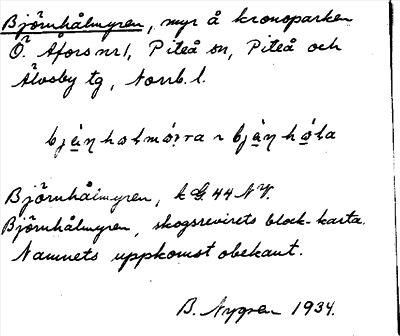 Björnhålmyren, myr å kronoparken
Ö. Åfors nr 1, Piteå sn, Piteå och
Älvsby tg, Norrb. l.
Björnhålmyren, k G. 44 NV.
Björnhålmyren, skogsrevirets block-karta.
Namnets uppkomst obekant.
B. Nygren 1934.